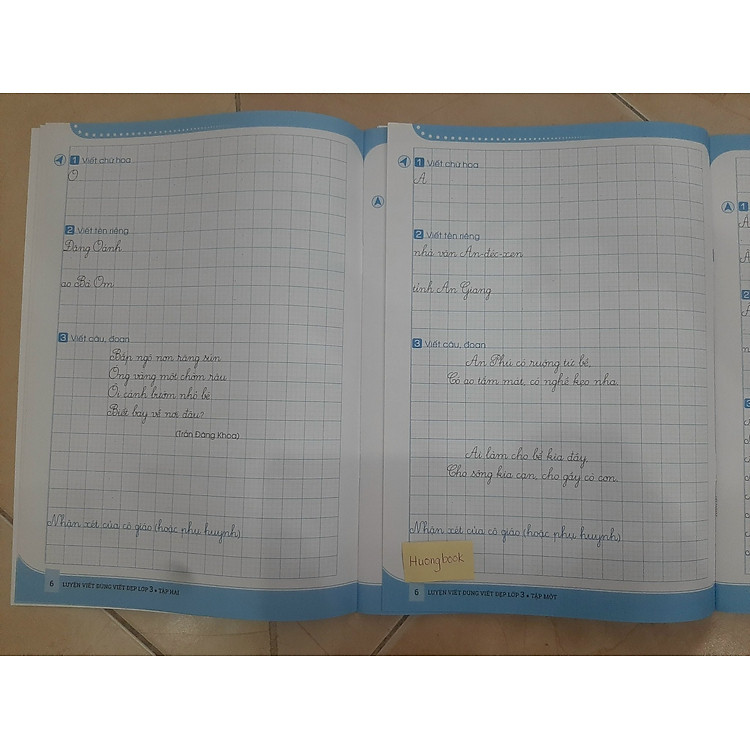 1 Viết chữ hoa
O
2 Viết tên riêng
Đặng Oanh
ao Bà Om
3 Viết câu, đoạn
Bắp ngô non răng sún
Ong vàng một chòm râu
Ơi cánh bướm nhỏ bé
Biết bay về nơi đâu?
(Trần Đăng Khoa)
Nhận xét của cô giáo (hoặc phụ huynh)
6 LUYỆN VIẾT ĐÚNG VIẾT ĐẸP LỚP 3 • TẬP HAI
1 Viết chữ hoa
A
2 Viết tên riêng
nhà văn An-đéc-xen
tỉnh An Giang
3 Viết câu, đoạn
An Phú có ruộng tứ bề,
Có ao tắm mát, có nghề kẹo nha.
Ai làm cho bể kia đầy
Cho sông kia cạn, cho gầy cò con.
Nhận xét của cô giáo (hoặc phụ huynh)
Huongbook
6 LUYỆN VIẾT ĐÚNG VIẾT ĐẸP LỚP 3 • TẬP MỘT